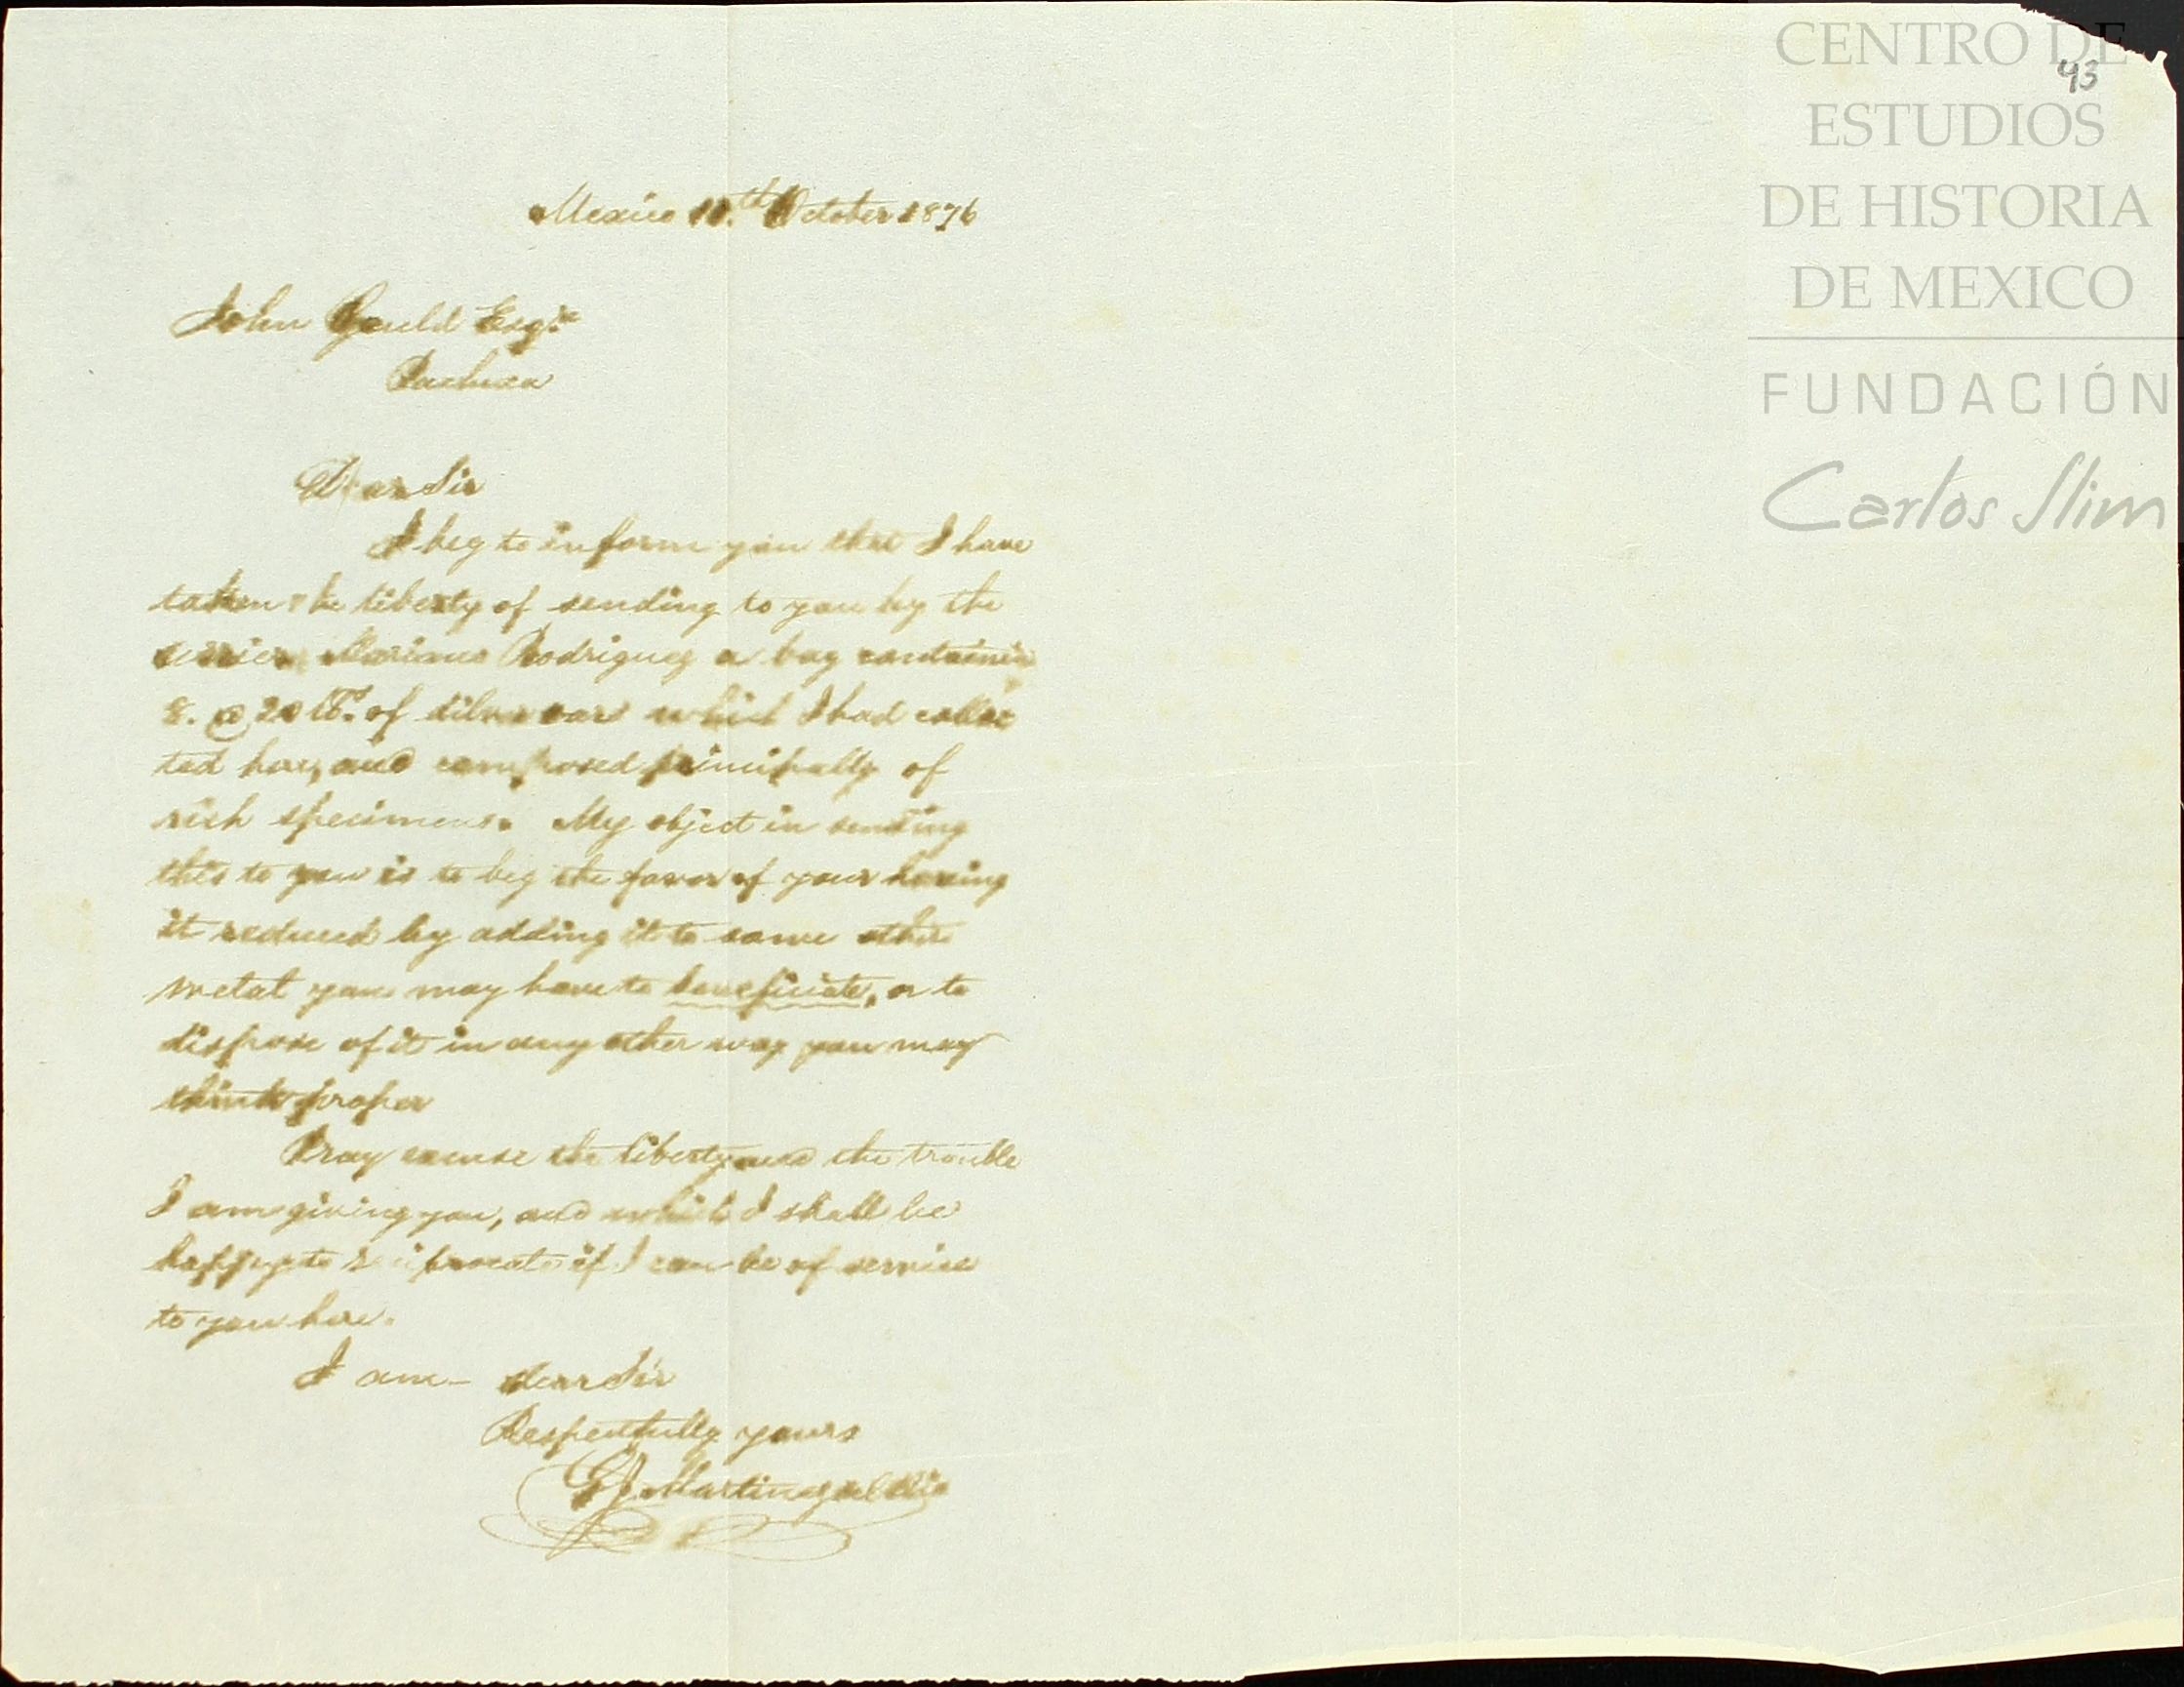 CENTRO DE
43
ESTUDIOS
DE HISTORIA
DE MEXICO
FUNDACIÓN
Carlos Slim
Mexico th October 1876
John Gould Esqre
Pachuca
Dear Sir
I beg to inform you that I have
taken the liberty of sending to you by the
Mariano Rodriguez a bag containin
8. @ 20 lbs. of silver oar which I had collec
ted here, and composed principally of
rich specimens. My object in sending
this to you is to beg the favor of your having
it reduced by adding it to some other
metal you may have to beneficiate, or to
dispose of it in any other way you may
think proper
Pray excuse the liberty and the trouble
I am giving you, and which I shall be
happy to reciprocate if I can be of service
to you here.
I am - dear Sir
Respectfully yours
Martinez del Rio